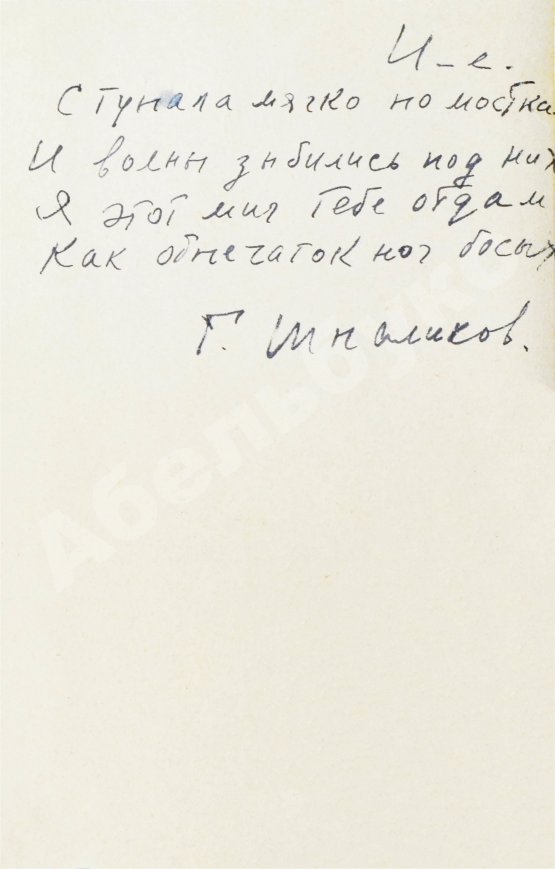 И-е.
Ступала мягко по мостка
И волны зыбились под них
Я этот миг тебе отдам
Как отпечаток ног босых
Г. Шпаликов.
Абельбуко